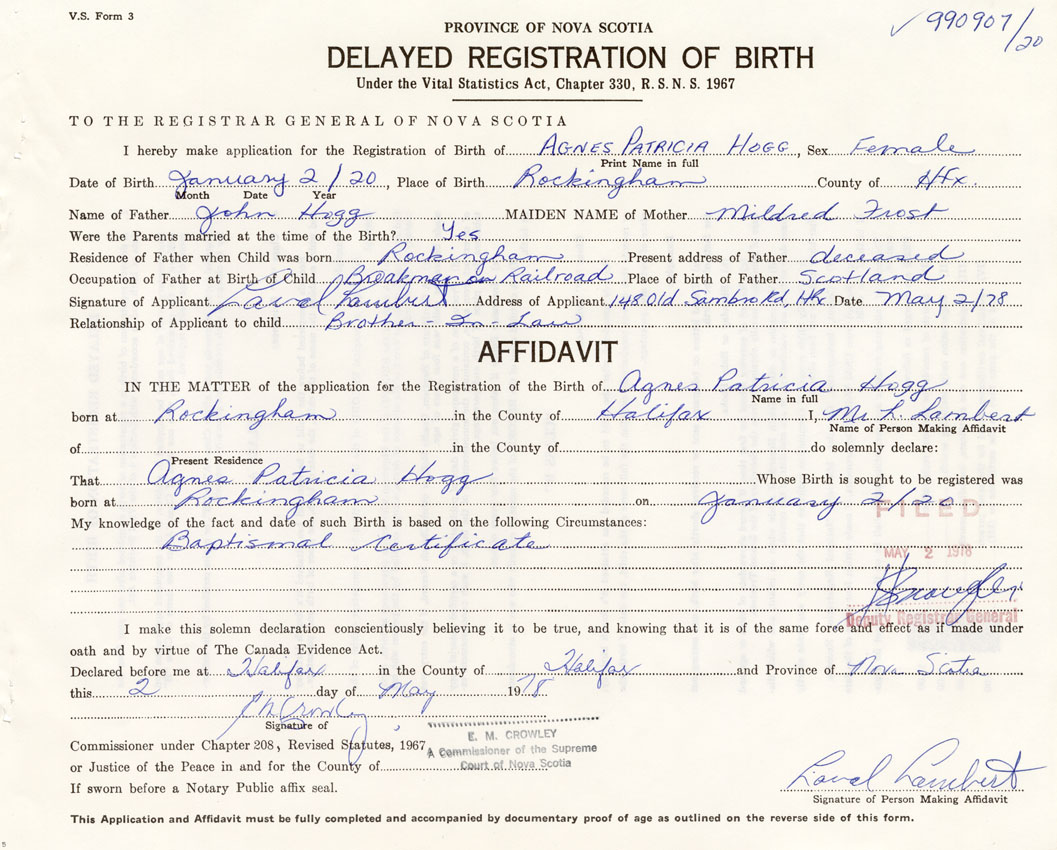 V.S. Form 3
✓ 990907/20
PROVINCE OF NOVA SCOTIA
DELAYED REGISTRATION OF BIRTH
Under the Vital Statistics Act, Chapter 330, R.S.N.S. 1967
TO THE REGISTRAR GENERAL OF NOVA SCOTIA
I hereby make application for the Registration of Birth of AGNES PATRICIA HOGG, Sex Female
Print Name in full
Date of Birth January 2/20, Place of Birth Rockingham County of Hfx.
Month Date Year
Name of Father John Hogg MAIDEN NAME of Mother Mildred Frost
Were the Parents married at the time of the Birth? Yes
Residence of Father when Child was born Rockingham Present address of Father deceased
Occupation of Father at Birth of Child Breakman on Railroad Place of birth of Father Scotland
Signature of Applicant Laval Lambert Address of Applicant 148 Old Sambro Rd, Hfx. Date May 2/78
Relationship of Applicant to child Brother-In-Law
AFFIDAVIT
IN THE MATTER of the application for the Registration of the Birth of Agnes Patricia Hogg
Name in full
born at Rockingham in the County of Halifax I, Mr L. Lambert
Name of Person Making Affidavit
of in the County of do solemnly declare:
Present Residence
That Agnes Patricia Hogg Whose Birth is sought to be registered was
born at Rockingham on January 2/20
FILED
My knowledge of the fact and date of such Birth is based on the following Circumstances:
Baptismal Certificate
MAY 2 1978
Deputy Registrar General
I make this solemn declaration conscientiously believing it to be true, and knowing that it is of the same force and effect as if made under
oath and by virtue of The Canada Evidence Act.
Declared before me at Halifax in the County of Halifax and Province of Nova Scotia
this 2 day of May 1978
E M Crowley
Signature of
E. M. CROWLEY
Commissioner under Chapter 208, Revised Statutes, 1967
A Commissioner of the Supreme
or Justice of the Peace in and for the County of
Court of Nova Scotia
If sworn before a Notary Public affix seal.
Laval Lambert
Signature of Person Making Affidavit
This Application and Affidavit must be fully completed and accompanied by documentary proof of age as outlined on the reverse side of this form.
5